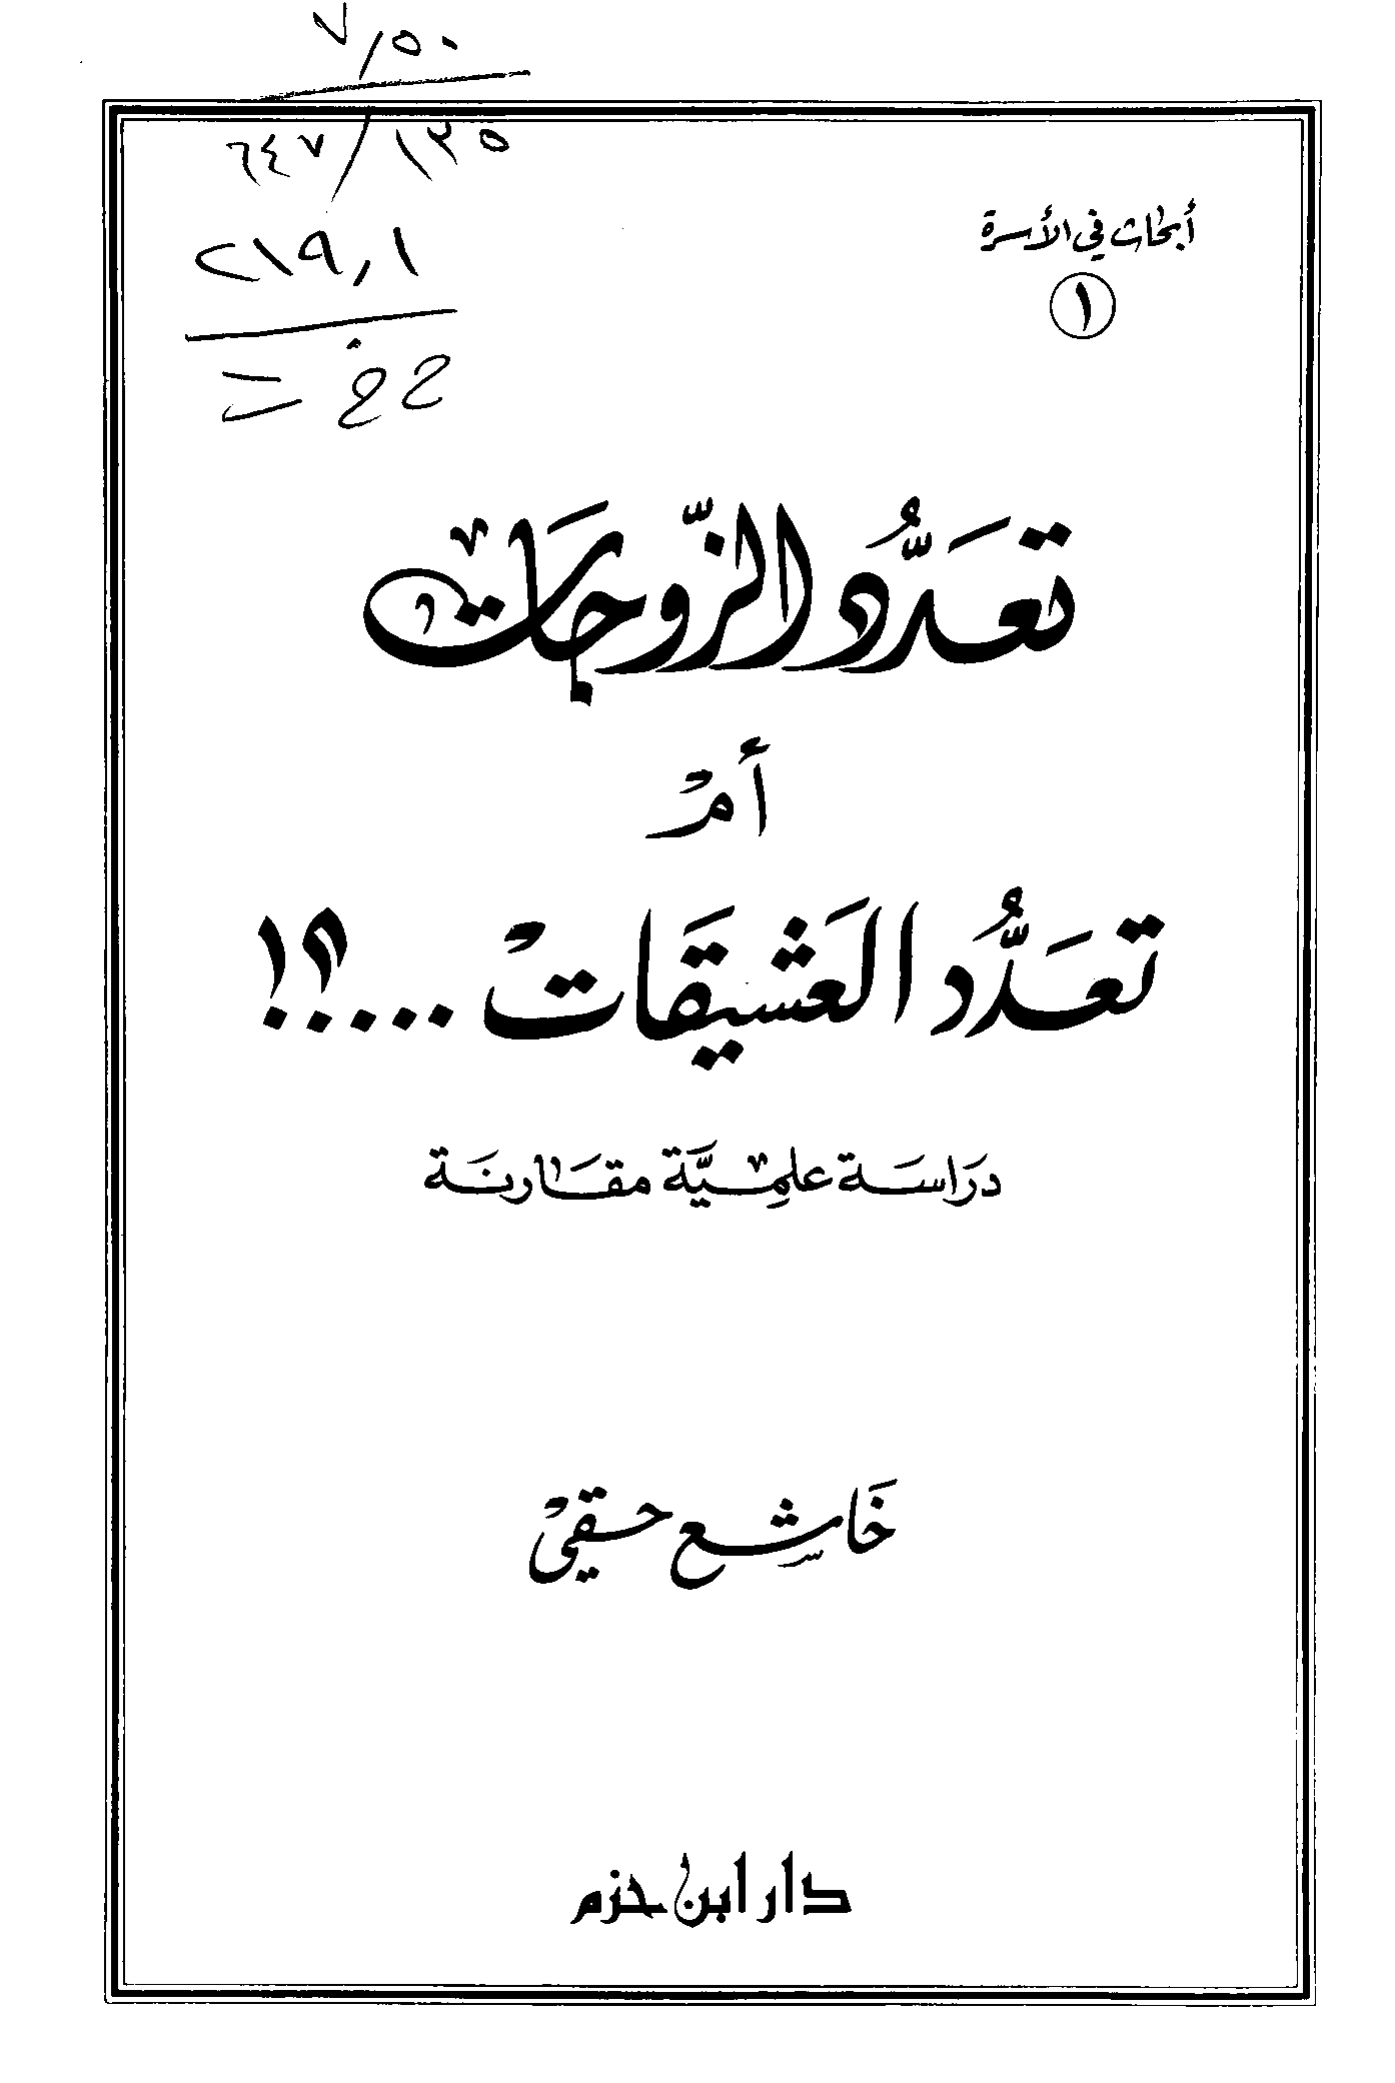 ٧/٥٠
٦٤٧/١٣٥
٢١٩,١
أبحاث في الأسرة
١
تعَدُّد الزّوجَات
أمْ
تعَدُّد العَشيقَاتْ ...؟!
دَراسَة علميَّة مقَارنَة
خَاشع حقيْ
دار ابن حزم